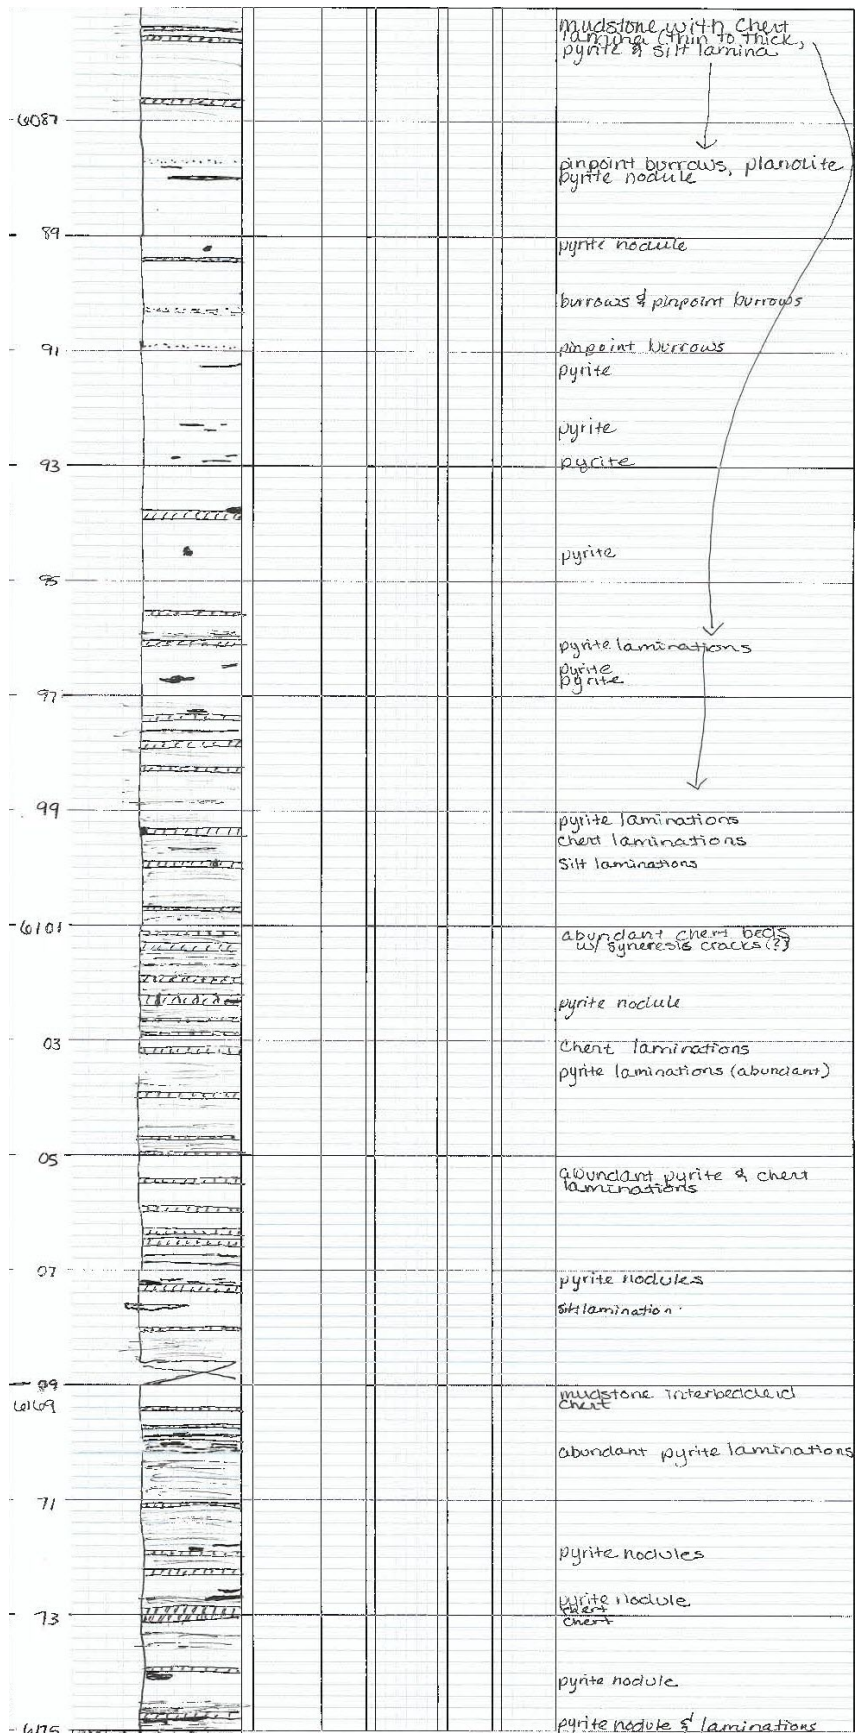 mudstone with chert
lamina (thin to thick,
pyrite & silt lamina
6087
pinpoint burrows, planolite
pyrite nodule
89
pyrite nodule
burrows & pinpoint burrows
91
pinpoint burrows
pyrite
pyrite
93
pyrite
pyrite
95
pyrite laminations
pyrite
pyrite
97
99
pyrite laminations
chert laminations
silt laminations
6101
abundant chert beds
w/ syneresis cracks (?)
pyrite nodule
03
chert laminations
pyrite laminations (abundant)
05
abundant pyrite & chert
laminations
07
pyrite nodules
silt lamination
09
6169
mudstone interbedded
chert
abundant pyrite laminations
71
pyrite nodules
pyrite nodule
chert
73
chert
pyrite nodule
6175
pyrite nodule & laminations